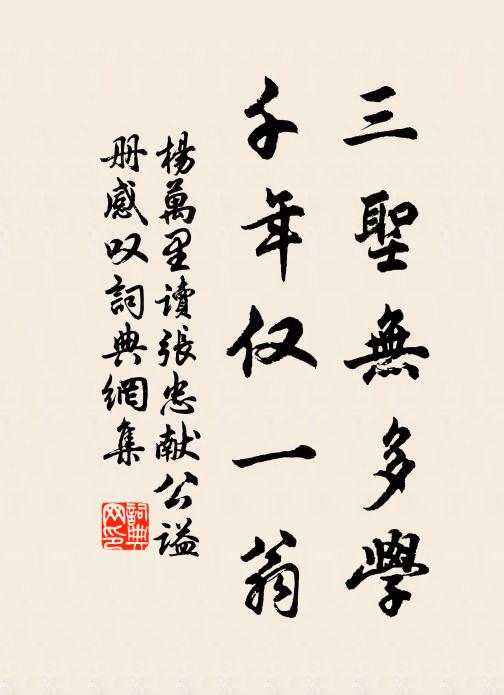 三聖無多學
千年仅一翁
楊萬里讀張忠献公謚
册感叹詞典網集
詞典
网印